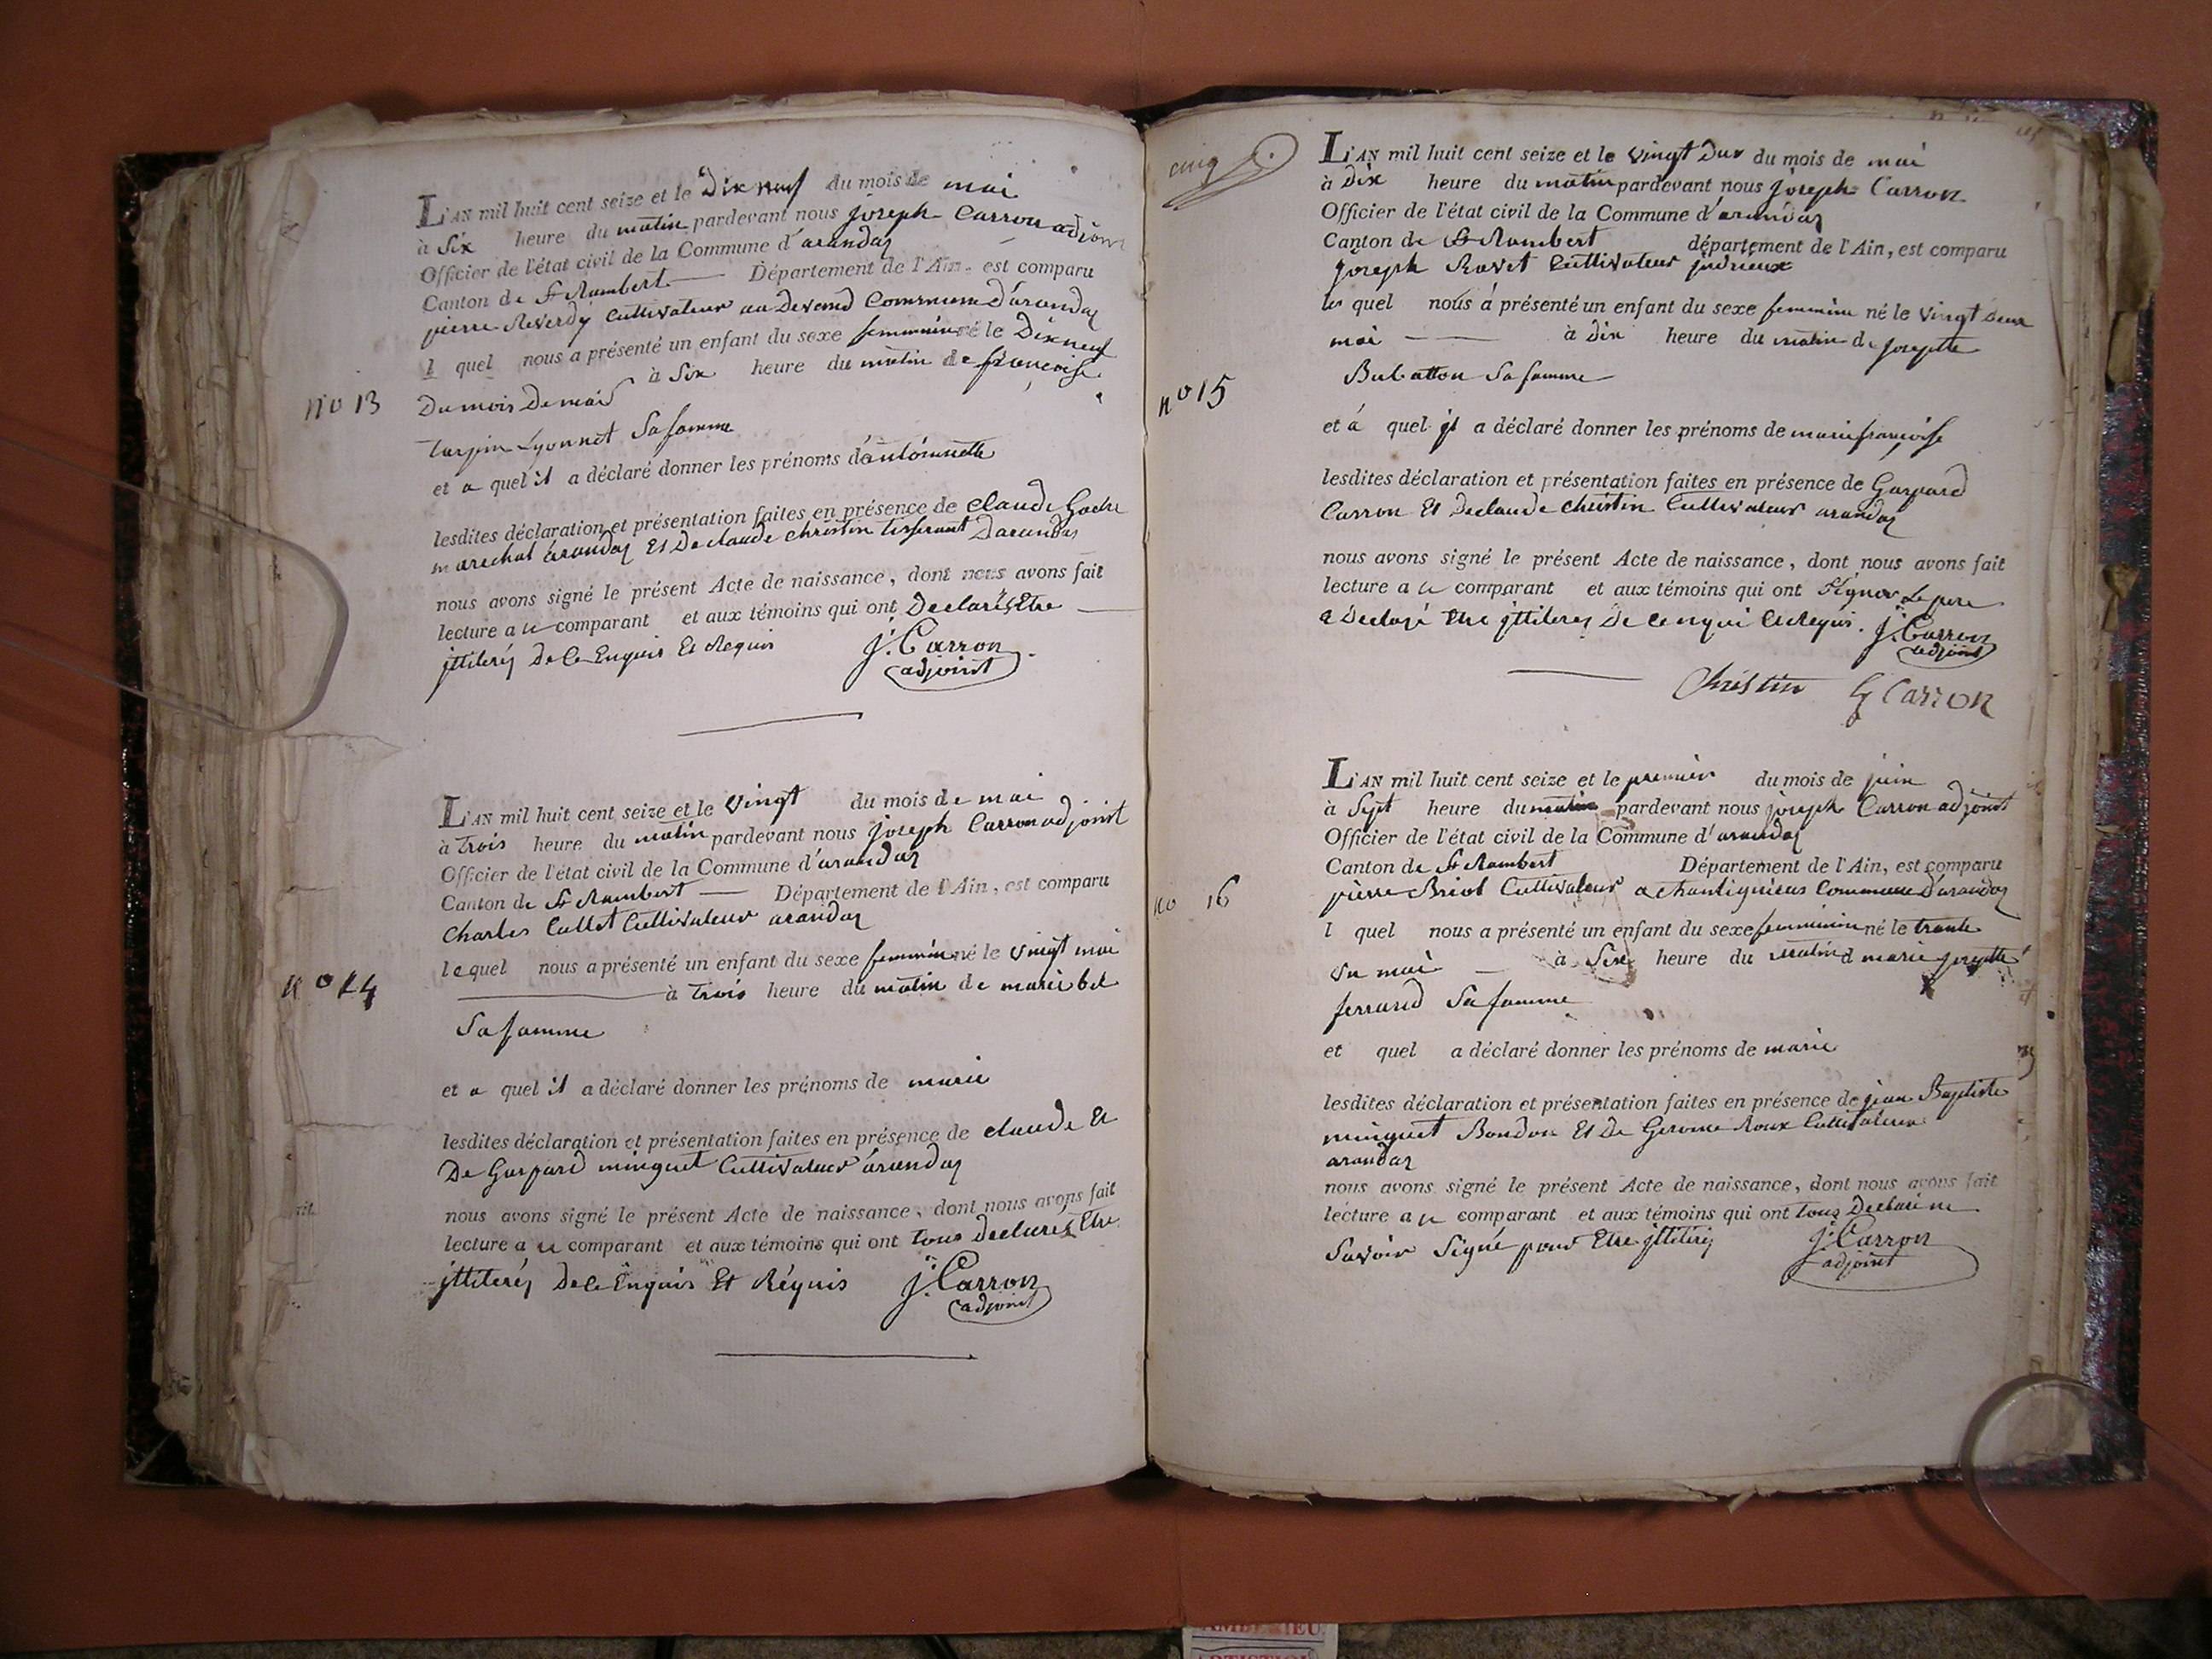 L'AN mil huit cent seize et le Dix neuf du mois de mai
à Six heure du matin pardevant nous joseph Carron adjoint
Officier de l'état civil de la Commune d'arandaz
Canton de St Rambert Département de l'Ain, est comparu
pierre Reverdy Cultivateur au Devend Commune D'arandaz
l quel nous a présenté un enfant du sexe femminin né le Dix neuf
Du mois De mai à Six heure du matin de françoise
no 13
turpin Lyonnet Sa famme
et a quel il a déclaré donner les prénoms d'antoinnette
lesdites déclaration et présentation faites en présence de Claude
marechal arandaz Et De claude christin tisserant Darandas
nous avons signé le présent Acte de naissance, dont nous avons fait
lecture a ce comparant et aux témoins qui ont Declarés Etre
jttiterés De Ce Enquis Et Requis
j. Carron
adjoint
L'AN mil huit cent seize et le vingt du mois de mai
à trois heure du matin pardevant nous joseph Carron adjoint
Officier de l'état civil de la Commune d'arandaz
Canton de St Rambert Département de l'Ain, est comparu
Charles Cullet Cultivateur arandaz
lequel nous a présenté un enfant du sexe femminin né le vingt mai
no 14
à trois heure du matin de marie bel
Sa famme
et a quel il a déclaré donner les prénoms de marie
lesdites déclaration et présentation faites en présence de claude Et
De Gaspard minguet Cultivateur arandaz
nous avons signé le présent Acte de naissance, dont nous avons fait
lecture a ce comparant et aux témoins qui ont tous Declarés Etre
jttiterés De Ce Enquis Et Réquis
j. Carron
adjoint
cinq
L'AN mil huit cent seize et le vingt Dux du mois de mai
à Dix heure du matin pardevant nous joseph Carron
Officier de l'état civil de la Commune d'arandaz
Canton de St Rambert département de l'Ain, est comparu
joseph Ravet Cultivateur judrieux
le quel nous à présenté un enfant du sexe feminin né le vingt Deux
mai à Dix heure du matin de josepte
no 15
Bubatton Sa famme
et à quel jl a déclaré donner les prénoms de marie françoise
lesdites déclaration et présentation faites en présence de Gaspard
Carron Et De claude christin Cultivateur arandaz
nous avons signé le présent Acte de naissance, dont nous avons fait
lecture a ce comparant et aux témoins qui ont Signer Le pere
a Declaré Etre jttiterez De Ce nqui Et Requi.
j. Carron
adjoint
Christin G Carron
L'AN mil huit cent seize et le premier du mois de juin
à Sept heure du matin pardevant nous joseph Carron adjoint
Officier de l'état civil de la Commune d'arandaz
Canton de St Rambert Département de l'Ain, est comparu
pierre Briot Cultivateur a Commune D'arandaz
no 16
l quel nous a présenté un enfant du sexe femminin né le trante
un mai à Six heure du matin d marie josepte
ferrand Sa famme
et quel a déclaré donner les prénoms de marie
lesdites déclaration et présentation faites en présence de jean Baptiste
minguet Bondon Et De Gerome Roux Cultivateur
arandaz
nous avons signé le présent Acte de naissance, dont nous avons fait
lecture a ce comparant et aux témoins qui ont tous Declaré ne
Savoir Signé pour Etre jttiterés
j. Carron
adjoint